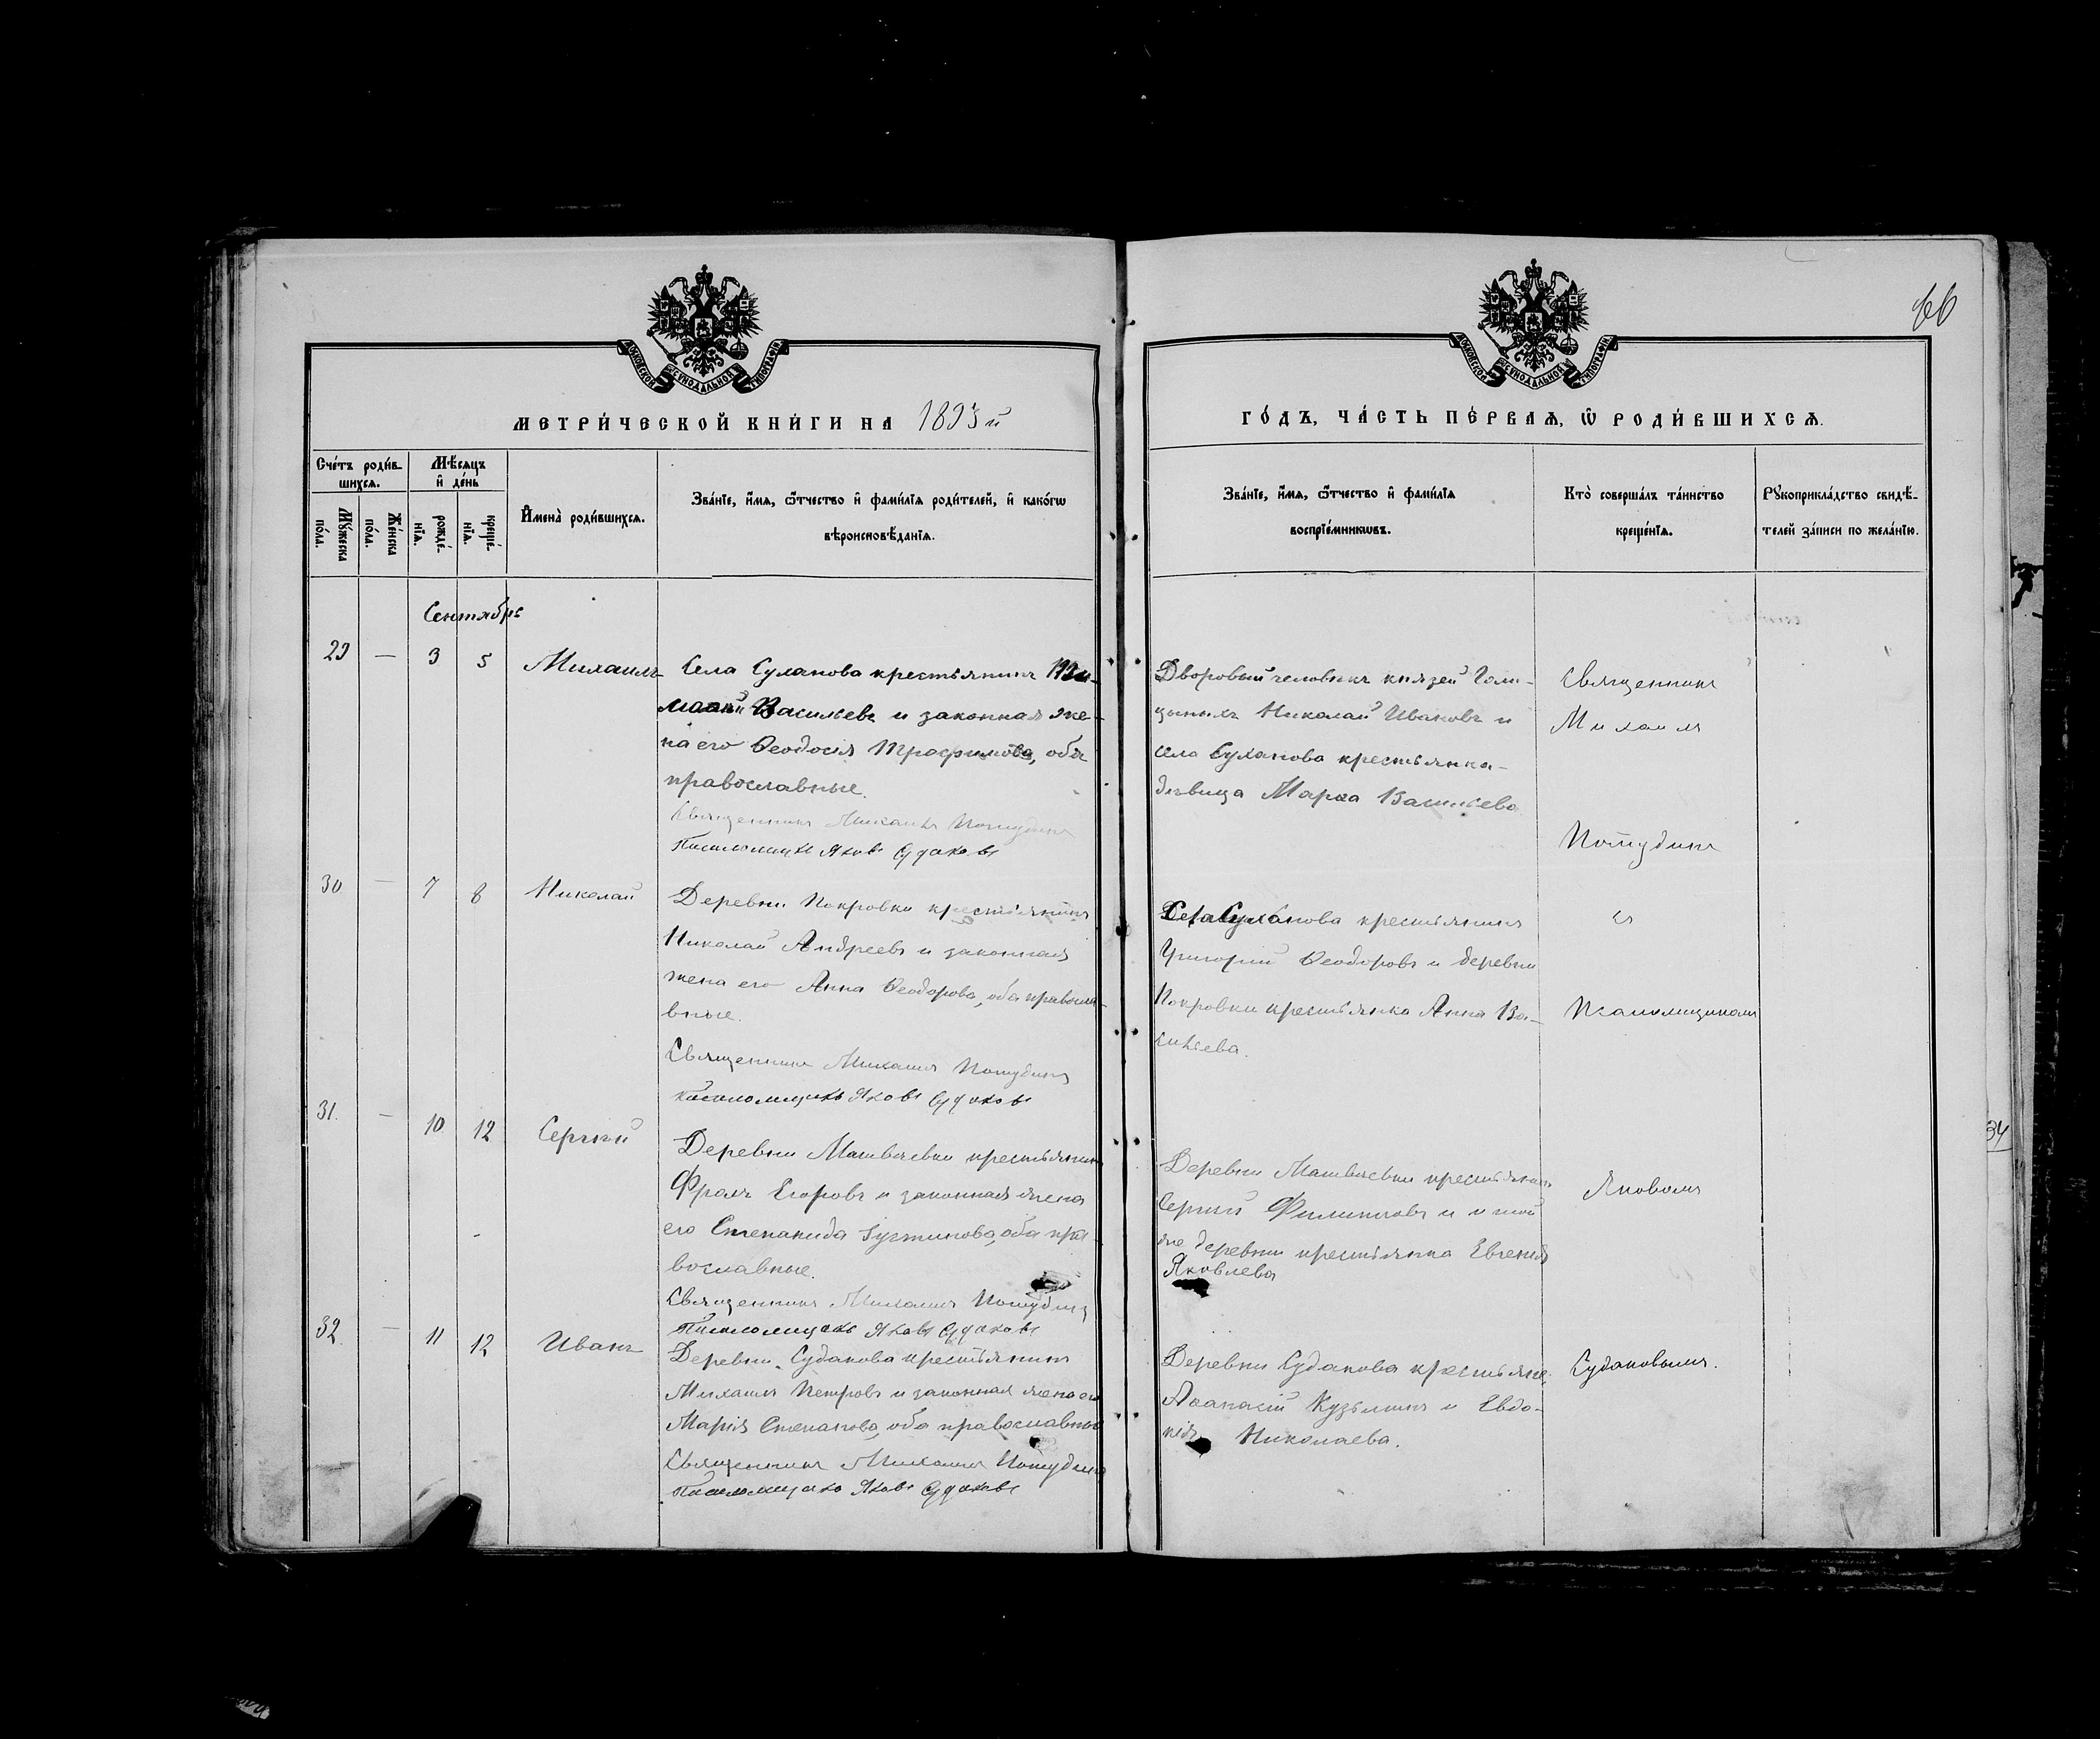 66
МОСКОВСКОЙ СѴНОДАЛЬНОЙ ТИПОГРАФІИ
МОСКОВСКОЙ СѴНОДАЛЬНОЙ ТИПОГРАФІИ
МЕТРИ́ЧЕСКОЙ КНИ́ГИ НА 1893й
ГО́ДЪ, ЧА́СТЬ ПЕ́РВАѦ, Ѿ РОДИ́ВШИХСѦ.
Сче́тъ роди́в-
шихсѧ.
Мꙋ́жеска по́ла.
Же́нска по́ла.
Мѣ́сѧцъ
и҆ де́нь
рожде́-
нїѧ.
креще́-
нїѧ.
И҆мена̀ роди́вшихсѧ.
Зва́нїе, и҆́мѧ, ѻ҆́тчество и҆ фами́лїѧ роди́телей, и҆ како́гѡ
вѣроисповѣ́данїѧ.
Зва́нїе, и҆́мѧ, ѻ҆́тчество и҆ фами́лїѧ
воспрїе́мникѡвъ.
Кто̀ соверша́лъ та́инство
креще́нїѧ.
Рꙋкоприкла́дство свидѣ́-
телей за́писи по жела́нїю.
Сентябрь
29 — 3 5 Михаилъ
Села Суханова крестьянинъ
Васильевъ и законная же-
на его Ѳеодосія Трофимова, оба
православные.
Священникъ Михаилъ Потудинъ
Псаломщикъ Яковъ Судаковъ
Дворовый человѣкъ князей Голи-
цыныхъ Николай Ивановъ и
села Суханова крестьянка-
дѣвица Марѳа Васильева
Священникъ
Михаилъ
Потудинъ
30 — 7 8 Николай
Деревни Покровки крестьянинъ
Николай Андреевъ и законная
жена его Анна Ѳеодорова, оба правосла-
вные.
Священникъ Михаилъ Потудинъ
Псаломщикъ Яковъ Судаковъ
Села Суханова крестьянинъ
Григорій Ѳеодоровъ и деревни
Покровки крестьянка Анна Ва-
сильева.
съ
Псаломщикомъ
31. — 10 12 Сергій
Деревни Матвѣевки крестьянинъ
Фролъ Егоровъ и законная жена
его Степанида Іустинова, оба пра-
вославные.
Священникъ Михаилъ Потудинъ
Псаломщикъ Яковъ Судаковъ
Деревни Матвѣевки крестьянинъ
Сергій Филипповъ и той
же деревни крестьянка Евгенія
Яковлева
Яковомъ
34
32. — 11 12 Иванъ
Деревни Судакова крестьянинъ
Михаилъ Петровъ и законная жена его
Марія Степанова, оба православные
Священникъ Михаилъ Потудинъ
Псаломщикъ Яковъ Судаковъ
Деревни Судакова крестьяне
Аѳанасій Кузьминъ и Евдо-
кія Николаева.
Судаковымъ.